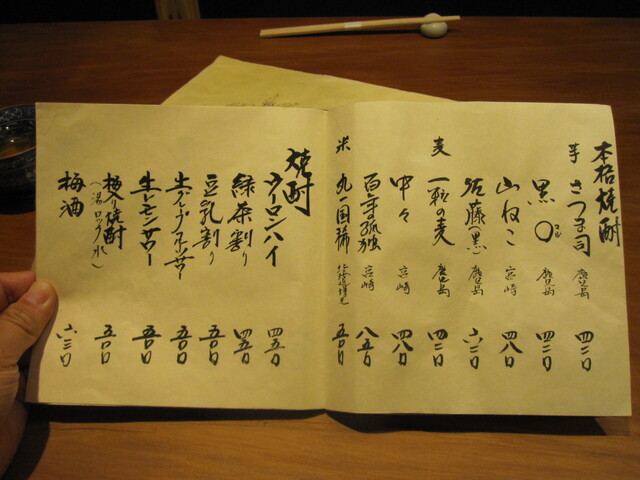 本格焼酎
芋 さつま司 鹿児島 四二〇
黒〇 鹿児島 四二〇
山ねこ 宮崎 四八〇
佐藤(黒) 鹿児島 六二〇
麦 一粒の麦 鹿児島 四二〇
中々 宮崎 四八〇
百年の孤独 宮崎 八五〇
米 九一国稀 北海道増毛 五〇〇
焼酎
ウーロンハイ 四五〇
緑茶割り 四五〇
豆乳割り 五〇〇
生グレープフルーツサワー 五五〇
生レモンサワー 五五〇
梅入り焼酎 五〇〇
(湯ロック水)
梅酒 六三〇